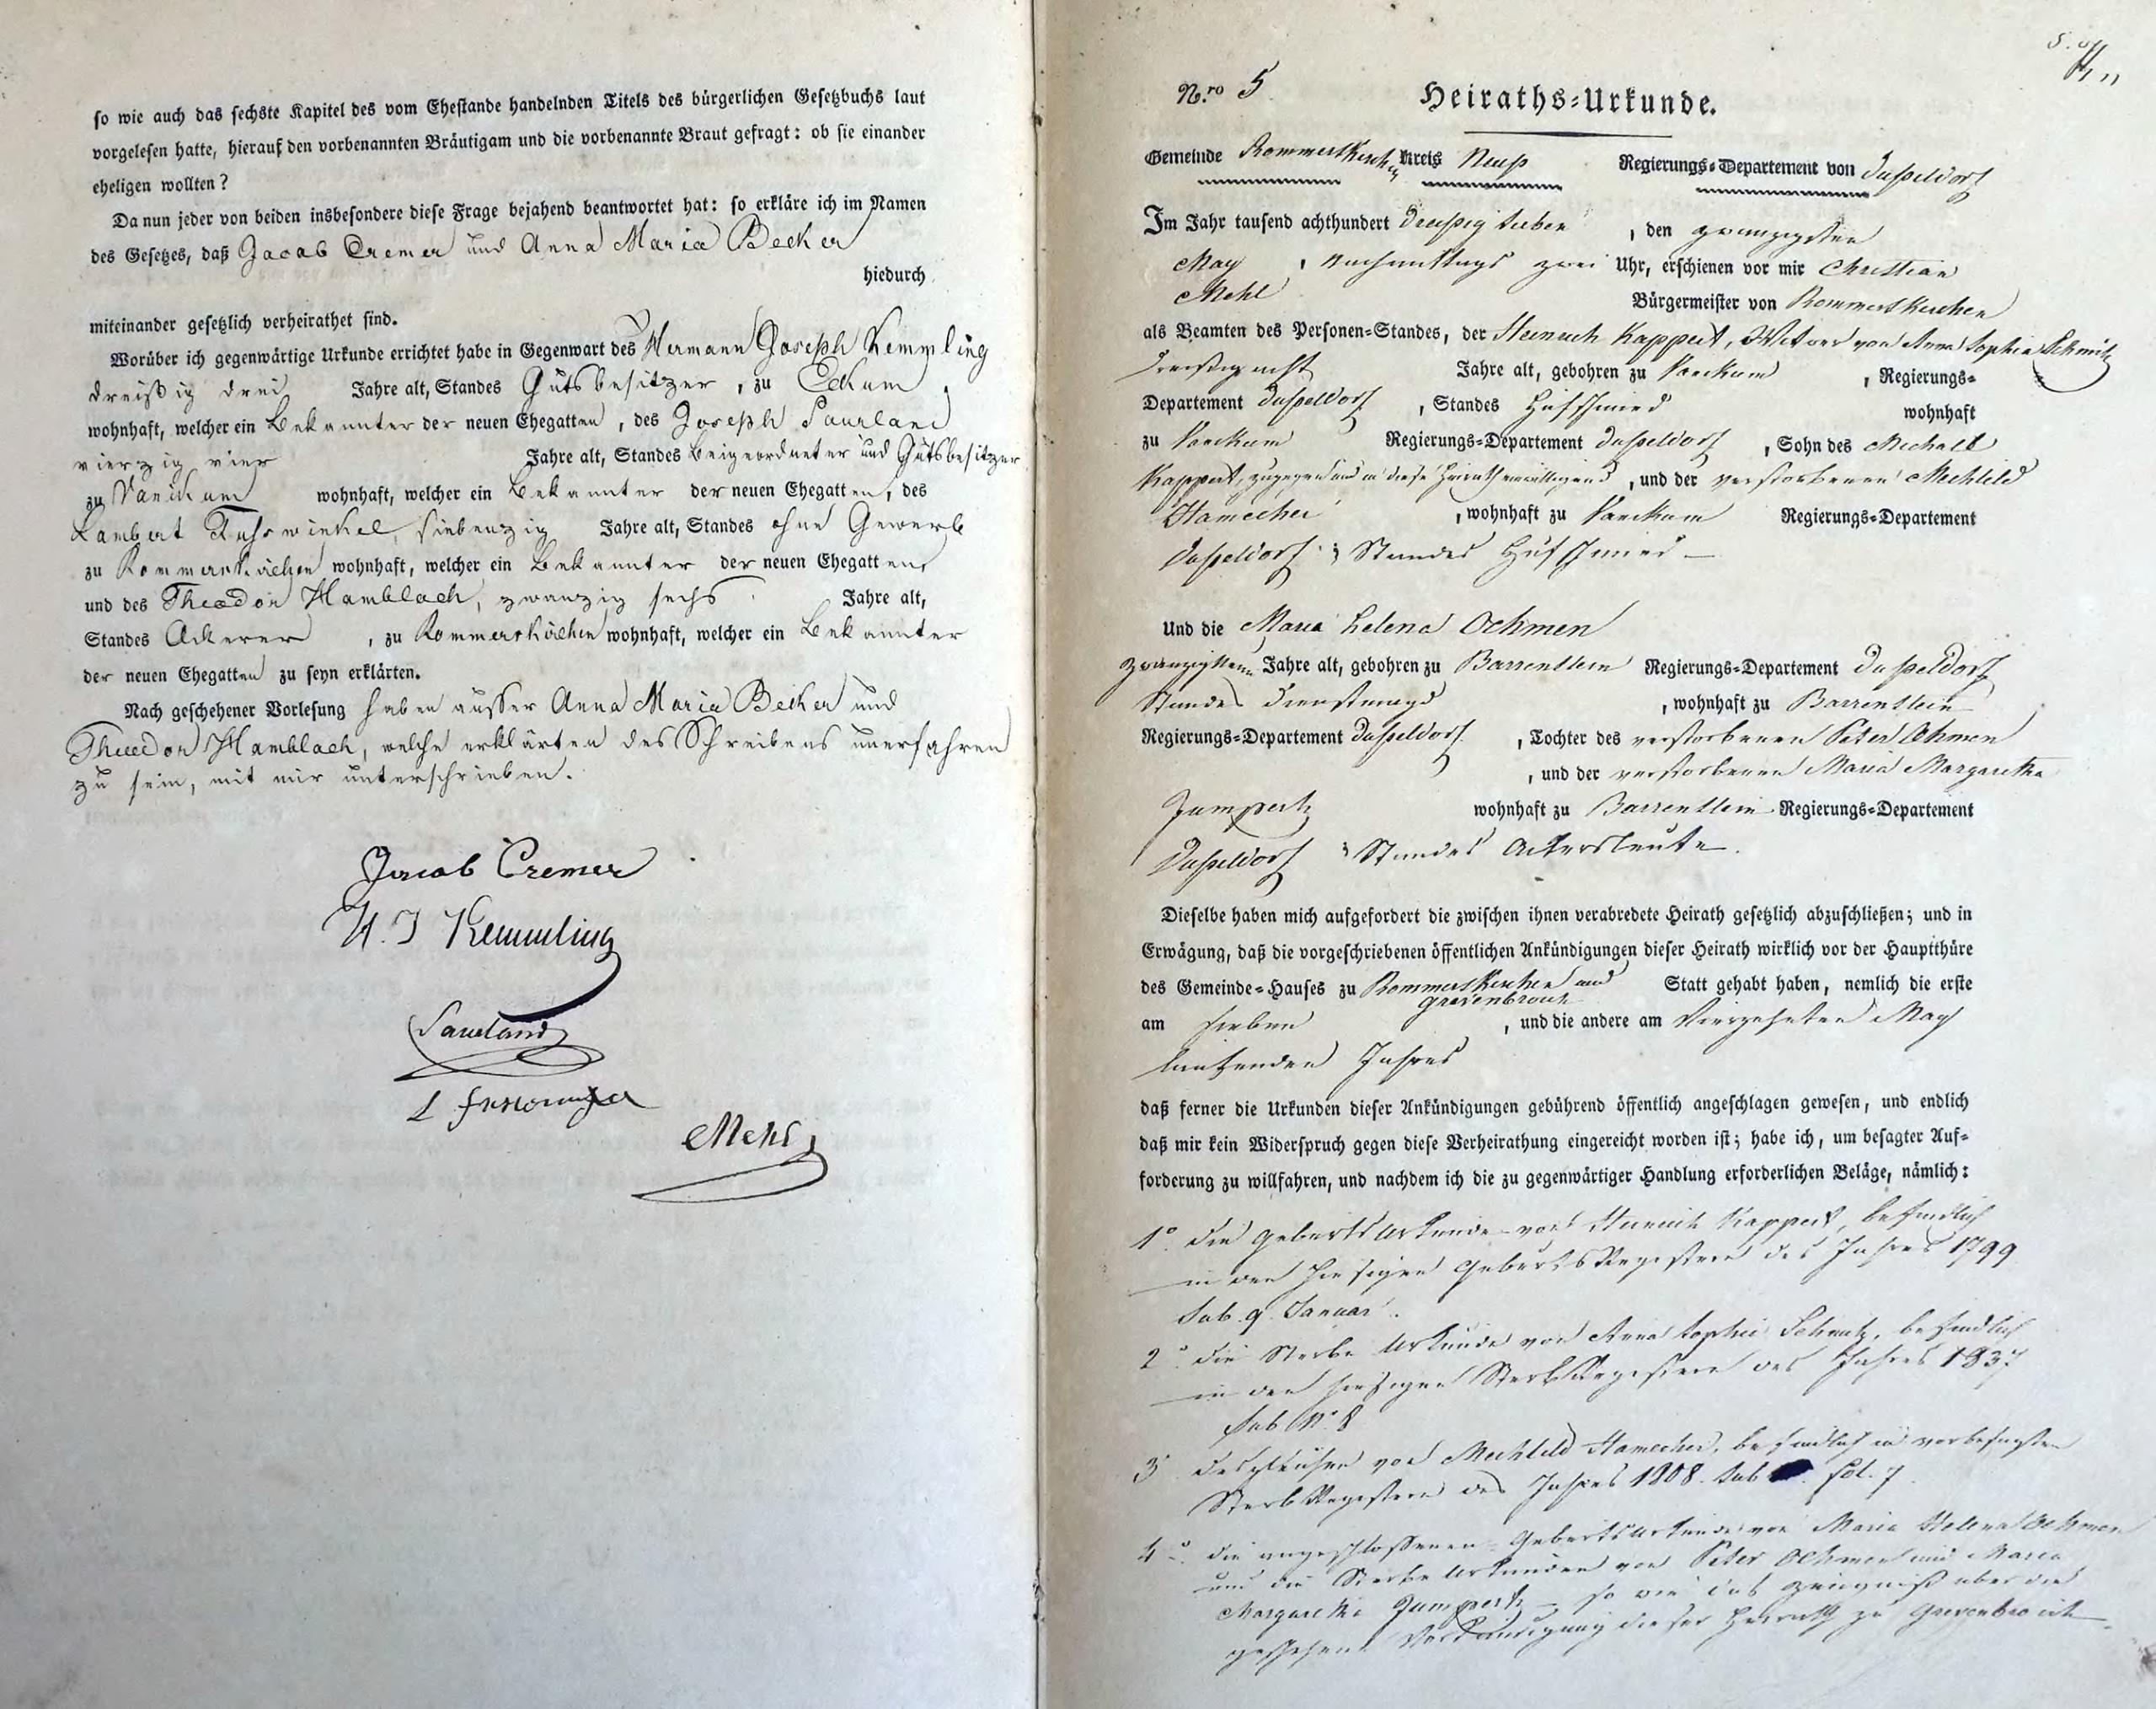 so wie auch das sechste Kapitel des vom Ehestande handelnden Titels des bürgerlichen Gesetzbuchs laut
vorgelesen hatte, hierauf den vorbenannten Bräutigam und die vorbenannte Braut gefragt: ob sie einander
eheligen wollten?
Da nun jeder von beiden insbesondere diese Frage bejahend beantwortet hat: so erkläre ich im Namen
des Gesetzes, daß Jacob Cremer und Anna Maria Becker
hiedurch
miteinander gesetzlich verheirathet sind.
Worüber ich gegenwärtige Urkunde errichtet habe in Gegenwart des Hermann Joseph Kemmling
dreißig drei Jahre alt, Standes Gutsbesitzer, zu Eckum,
wohnhaft, welcher ein Bekannter der neuen Ehegatten, des Joseph Saurland
vierzig vier Jahre alt, Standes Beigeordneter und Gutsbesitzer
zu Vanikum wohnhaft, welcher ein Bekannter der neuen Ehegatten, des
Lambert Fuhswinkel, siebenzig Jahre alt, Standes ohne Gewerb
zu Rommerskirchen wohnhaft, welcher ein Bekannter der neuen Ehegatten,
und des Theodor Hamblach, zwanzig sechs Jahre alt,
Standes Ackerer, zu Rommerskirchen wohnhaft, welcher ein Bekannter
der neuen Ehegatten zu seyn erklärten.
Nach geschehener Vorlesung haben ausser Anna Maria Becker und
Theodor Hamblach, welche erklärten des Schreibens unerfahren
zu sein, mit mir unterschrieben.
Jacob Cremer
H. J Kemmling
Saurland
Mehl
N.ro 5
Heiraths-Urkunde.
Gemeinde Rommerskirchen Kreis Neuß Regierungs-Departement von Dußeldorf
Im Jahr tausend achthundert dreißig sieben, den zwanzigsten
May, Nachmittags zwei Uhr, erschienen vor mir Christian
Mehl Bürgermeister von Rommerskirchen
als Beamten des Personen-Standes, der Heinrich Kappert, Witwer von Anna Sophia Schmitz
dreißig acht Jahre alt, gebohren zu Vanikum, Regierungs-
Departement Dußeldorf, Standes Hufschmied wohnhaft
zu Vanikum Regierungs-Departement Dußeldorf, Sohn des Michael
Kappert, zugegen und in diese Heirath einwilligend, und der verstorbenen Mechtild
Hamecher, wohnhaft zu Vanikum Regierungs-Departement
Dußeldorf; Standes Hufschmied —
Und die Maria Helena Oehmen
zwanzig Jahre alt, gebohren zu Barrenstein Regierungs-Departement Dußeldorf
Standes Dienstmagd, wohnhaft zu Barrenstein
Regierungs-Departement Dußeldorf, Tochter des verstorbenen Peter Oehmen
, und der verstorbenen Maria Margaretha
Jumpertz wohnhaft zu Barrenstein Regierungs-Departement
Dußeldorf; Standes Ackersleute.
Dieselbe haben mich aufgefordert die zwischen ihnen verabredete Heirath gesetzlich abzuschließen; und in
Erwägung, daß die vorgeschriebenen öffentlichen Ankündigungen dieser Heirath wirklich vor der Hauptthüre
des Gemeinde-Hauses zu Rommerskirchen und Grevenbroich Statt gehabt haben, nemlich die erste
am sieben, und die andere am vierzehnten May
laufenden Jahres
daß ferner die Urkunden dieser Ankündigungen gebührend öffentlich angeschlagen gewesen, und endlich
daß mir kein Widerspruch gegen diese Verheirathung eingereicht worden ist; habe ich, um besagter Auf-
forderung zu willfahren, und nachdem ich die zu gegenwärtiger Handlung erforderlichen Beläge, nämlich:
1° die Geburts Urkunde von Heinrich Kappert, befindlich
in den hiesigen Geburts Registern des Jahres 1799
sub 9 Januar.
2° die Sterbe Urkunde von Anna Sophia Schmitz, befindlich
in den hiesigen Sterb Registern des Jahres 1837
sub N° 8
3° desgleichen von Mechtild Hamecher, befindlich in vorbesagten
Sterb Registern des Jahres 1808. sub fol. 7.
4° die angeschlossenen Geburts Urkunde von Maria Helena Oehmen
und die Sterbe Urkunden von Peter Oehmen und Maria
Margaretha Jumpertz — so wie das Zeugniß über die
geschehene Verkündigung dieser Heirath zu Grevenbroich